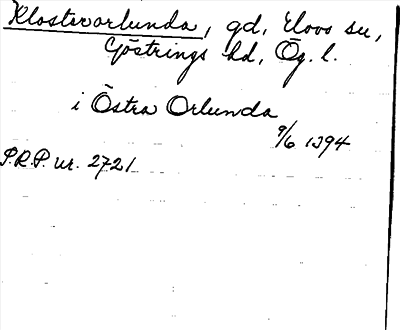 Klosterorlunda, gd, Elvos su,
Göstrings hd, Ög. l.
i Östra Orlunda
9/6 1394
P.R.P. nr. 2721